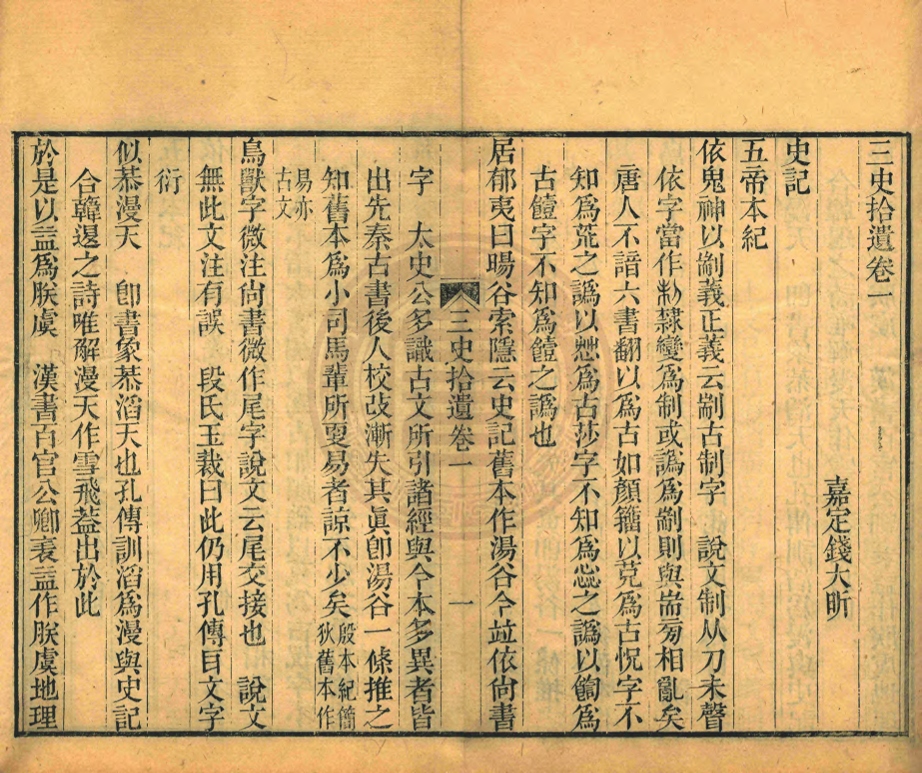 三史拾遺卷一
嘉定錢大昕
史記
五帝本紀
依鬼神以制義正義云制古制字 說文制从刀未聲
依字當作㓞隸變為制或譌為剬則與耑旁相亂矣
唐人不諳六書翻以為古如顏籀以
為古怳字不
知為㠩之譌以
為古莎字不知為
之譌以
為
古饐字不知為饐之譌也
居郁夷曰暘谷索隱云史記舊本作湯谷今竝依尙書
三史拾遺卷一
一
字 太史公多識古文所引諸經與今本多異者皆
出先秦古書後人校改漸失其眞卽湯谷一條推之
知舊本為小司馬輩所更易者諒不少矣殷本紀簡
狄舊本作
易亦
古文
鳥獸字微注尙書微作尾字說文云尾交接也 說文
無此文注有誤 段氏玉裁曰此仍用孔傳㠯文字
衍
似恭漫天 卽書象恭滔天也孔傳訓滔為漫與史記
合韓退之詩唯解漫天作雪飛葢出於此
於是以益為朕虞 漢書百官公卿表益作朕虞地理